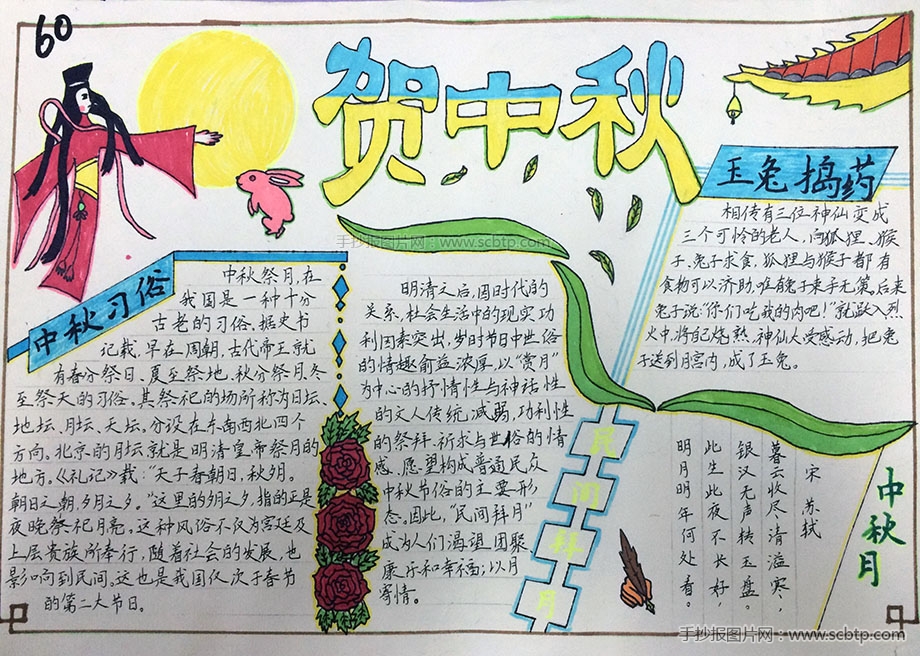 60
贺中秋
手抄报图片网:www.scbtp.com
中秋习俗
中秋祭月,在
我国是一种十分
古老的习俗。据史书
记载,早在周朝,古代帝王就
有春分祭日、夏至祭地、秋分祭月、冬
至祭天的习俗。其祭祀的场所称为日坛、
地坛、月坛、天坛。分设在东南西北四个
方向。北京的月坛就是明清皇帝祭月的
地方。《礼记》载:“天子春朝日,秋夕月。
朝日之朝,夕月之夕。”这里的夕月之夕,指的正是
夜晚祭祀月亮。这种风俗不仅为宫廷及
上层贵族所奉行,随着社会的发展,也
影响到民间。这也是我国仅次于春节
的第二大节日。
明清之后,因时代的
关系,社会生活中的现实功
利因素突出,岁时节日中世俗
的情趣俞益浓厚,以“赏月”
为中心的抒情性与神话性
的文人传统,减弱,功利性
的祭拜、祈求与世俗的情
感、愿望构成普通民众
中秋节俗的主要形
态。因此,“民间拜月”
成为人们渴望团聚、
康乐和幸福;以月
寄情。
民间拜月
玉兔捣药
相传有三位神仙变成
三个可怜的老人,向狐狸、猴
子、兔子求食,狐狸与猴子都有
食物可以济助,唯有兔子束手无策,后来
兔子说“你们吃我的肉吧!”就跃入烈
火中,将自己烧熟,神仙大受感动,把兔
子送到月宫内,成了玉兔。
中秋月
宋 苏轼
暮云收尽清溢寒,
银汉无声转玉盘。
此生此夜不长好,
明月明年何处看。
手抄报图片网:www.scbtp.com